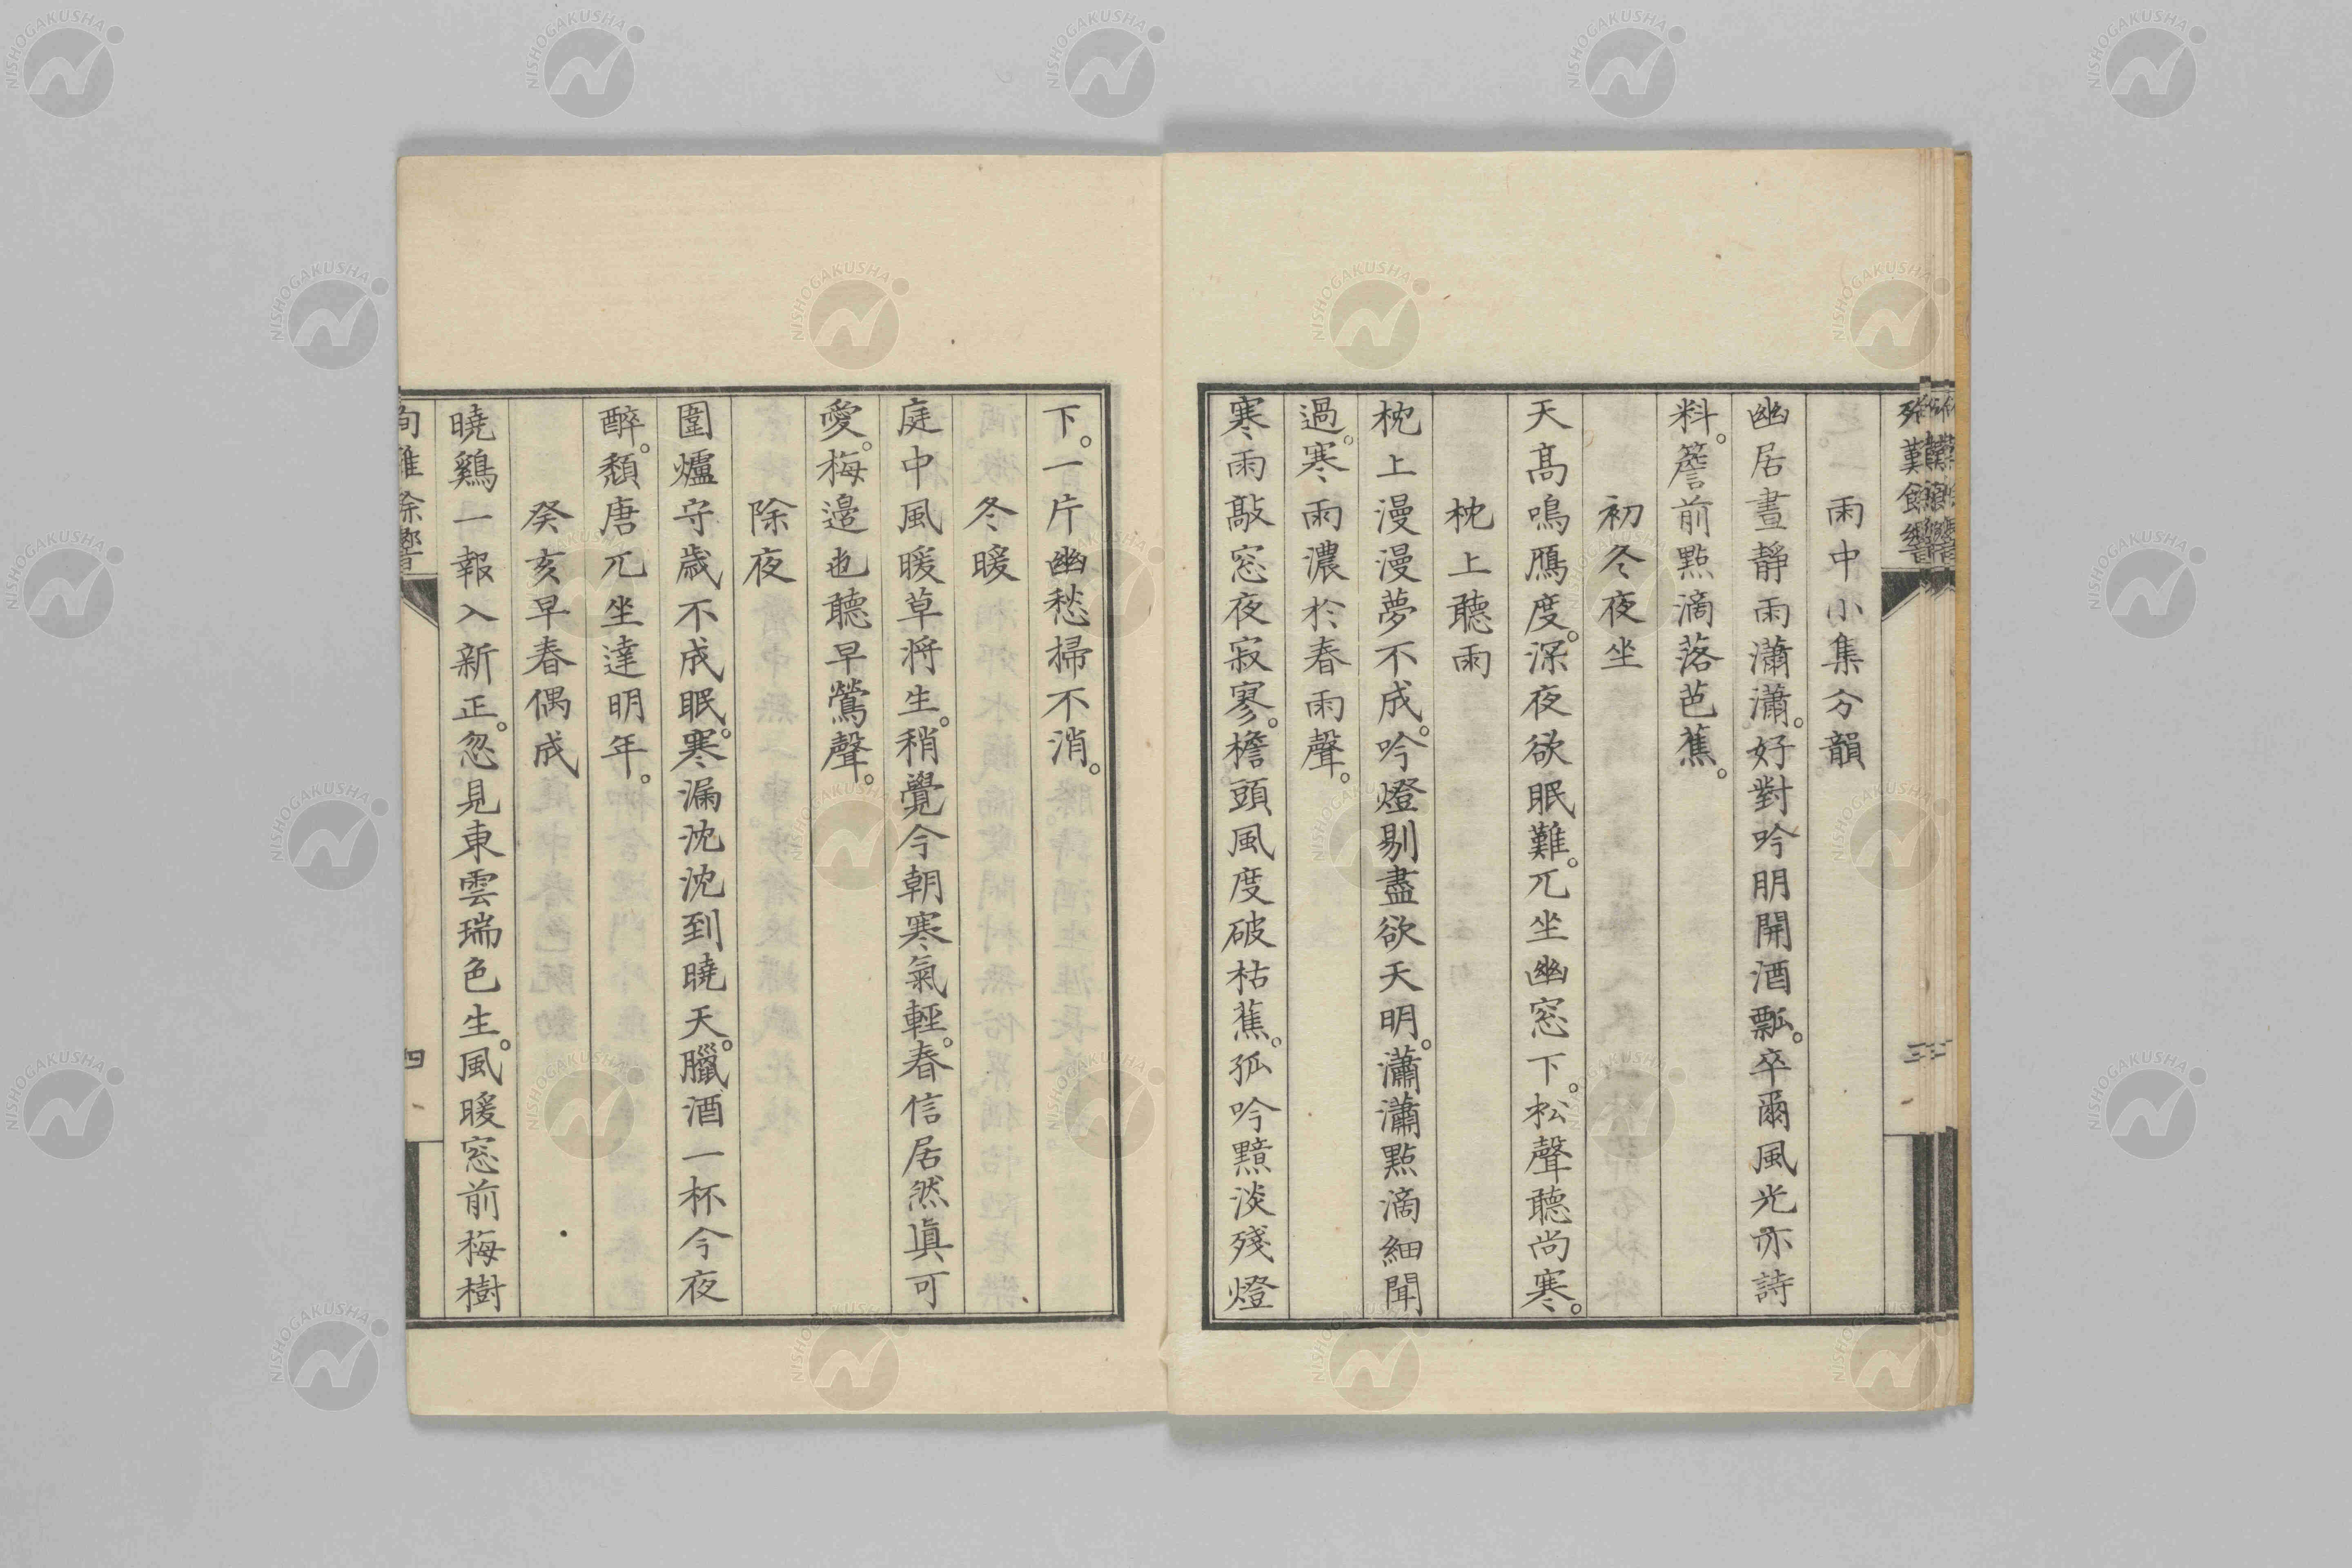 雨中小集分韻
幽居晝靜雨瀟瀟。好對吟朋開酒瓢。卒爾風光亦詩
料。簷前點滴落芭蕉。
初冬夜坐
天高鳴鴈度。深夜欲眠難。兀坐幽窓下。松聲聽尚寒。
枕上聽雨
枕上漫漫夢不成。吟燈剔盡欲天明。瀟瀟點滴細聞
過。寒雨濃於春雨聲。
寒雨敲窓夜寂寥。檐頭風度破枯蕉。孤吟黯淡殘燈
下。一片幽愁掃不消。
冬暖
庭中風暖草將生。稍覺今朝寒氣輕。春信居然眞可
愛。梅邊也聽早鶯聲。
除夜
圍爐守歲不成眠。寒漏沈沈到曉天。臘酒一杯今夜
醉。頽唐兀坐達明年。
癸亥早春偶成
曉鷄一報入新正。忽見東雲瑞色生。風暖窓前梅樹
四
NISHOGAKUSHA